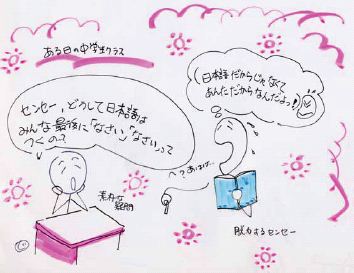 ある日の中学生クラス
センセー、どうして日本語は
みんな最後に「なさい」「なさい」って
つくの?
素朴な
疑問
日本語だからじゃなくて
あんただからなんだよっ!
へ?あはは…
脱力するセンセー